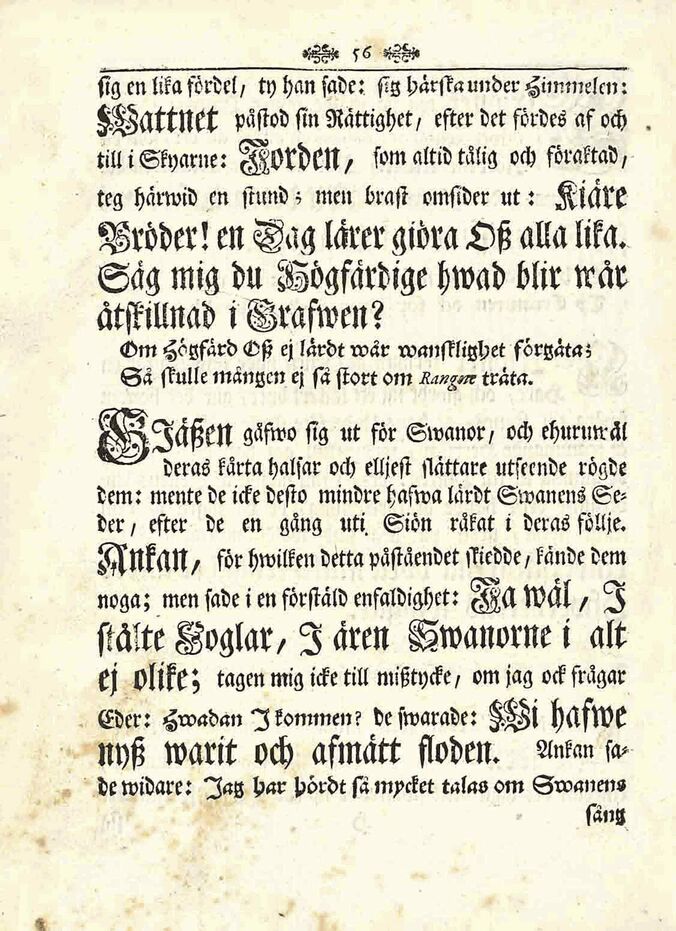 56
sig en lika fördel, ty han sade: sig härska under Himmelen:
Wattnet påstod sin Rättighet, efter det fördes af och
till i Skyarne: Jorden, som altid tålig och föraktad,
teg härwid en stund; men brast omsider ut: Kiäre
Bröder! en Dag lärer giöra Oß alla lika.
Säg mig du Högfärdige hwad blir wår
åtskillnad i Grafwen?
Om Högfärd Oß ej lärdt wår wansklighet förgäta;
Så skulle mången ej så stort om Rangen träta.
GJäßen gåfwo sig ut för Swanor, och ehuruwäl
deras kårta halsar och elljest slättare utseende rögde
dem: mente de icke desto mindre hafwa lärdt Swanens Se-
der, efter de en gång uti Siön råkat i deras föllje.
Ankan, för hwilken detta påståendet skiedde, kände dem
noga; men sade i en förstäld enfaldighet: Ja wäl, I
stålte Foglar, I ären Swanorne i alt
ej olike; tagen mig icke till mißtycke, om jag ock frågar
Eder: Hwadan I kommen? de swarade: Wi hafwe
nyß warit och afmätt floden. Ankan sa-
de widare: Jag har hördt så mycket talas om Swanens
sång